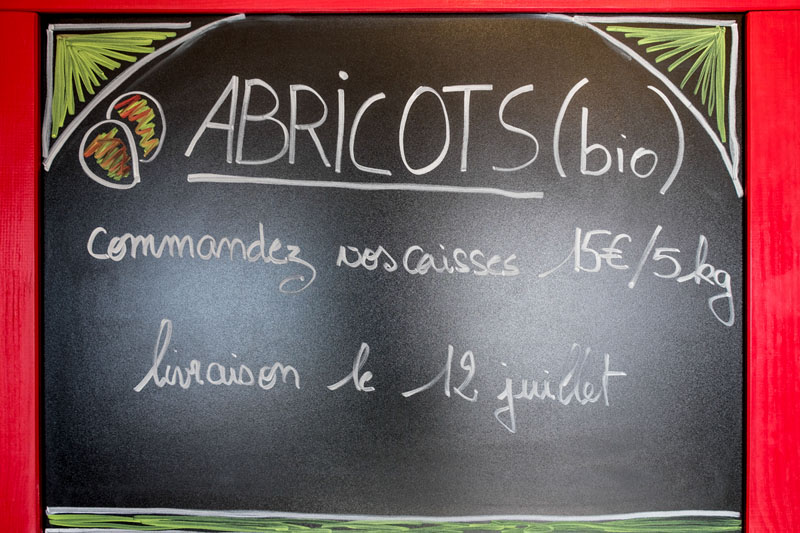 ABRICOTS (bio)
commandez vos caisses 15€/5kg
livraison le 12 juillet